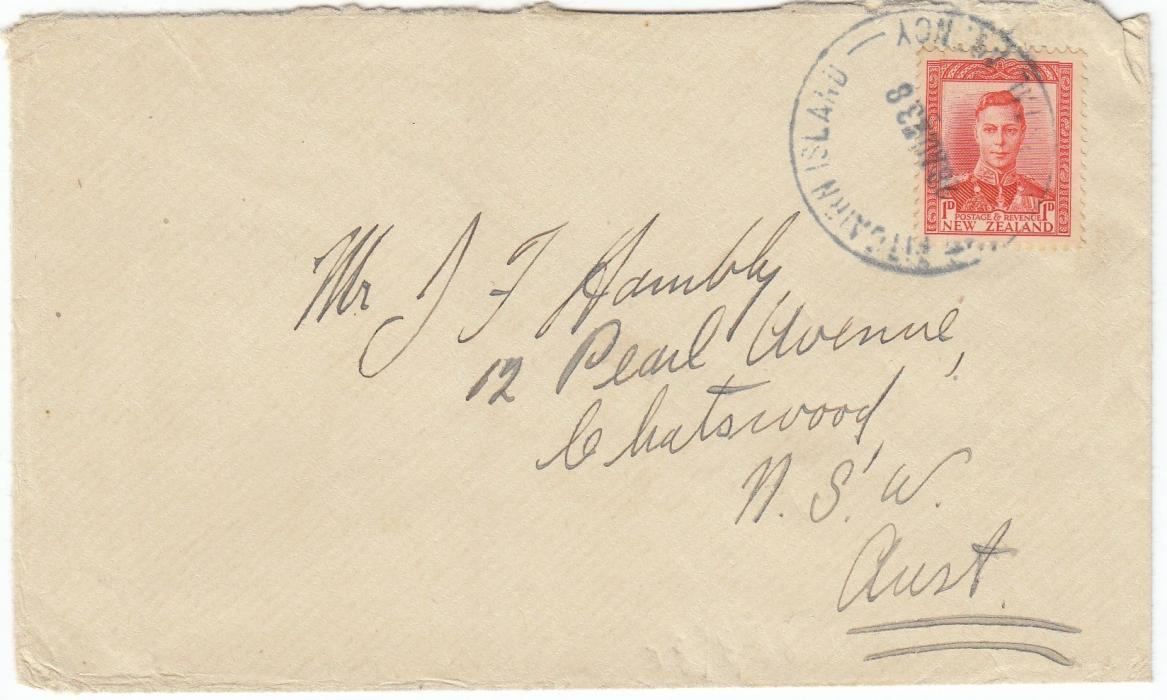 PITCAIRN ISLAND
38
1D 1D
POSTAGE & REVENUE
NEW ZEALAND
Mr J F Hambly
12 Pearl Avenue,
Chatswood
N. S. W.
Aust.